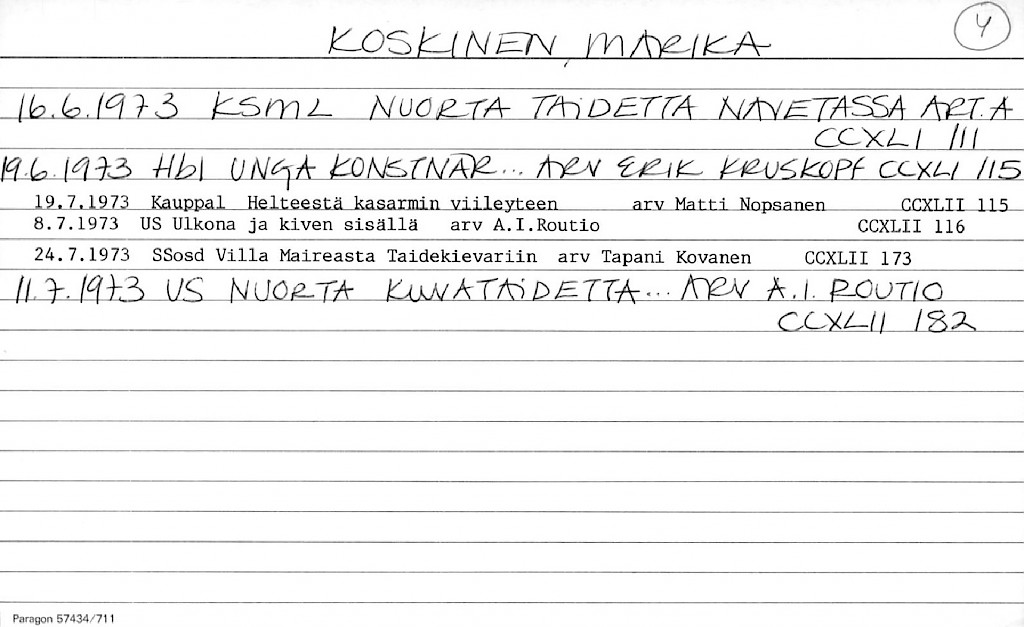 KOSKINEN, MARIKA
4
16.6.1973 KSML NUORTA TAIDETTA NAVETASSA ART.A
CCXLI 111
19.6.1973 Hbl UNGA KONSTNÄR... ARV ERIK KRUSKOPF CCXLI 115
19.7.1973 Kauppal Helteestä kasarmin viileyteen arv Matti Nopsanen CCXLII 115
8.7.1973 US Ulkona ja kiven sisällä arv A.I.Routio CCXLII 116
24.7.1973 SSosd Villa Maireasta Taidekievariin arv Tapani Kovanen CCXLII 173
11.7.1973 US NUORTA KUVATAIDETTA... ARV A.I. ROUTIO
CCXLII 182
Paragon 57434/711